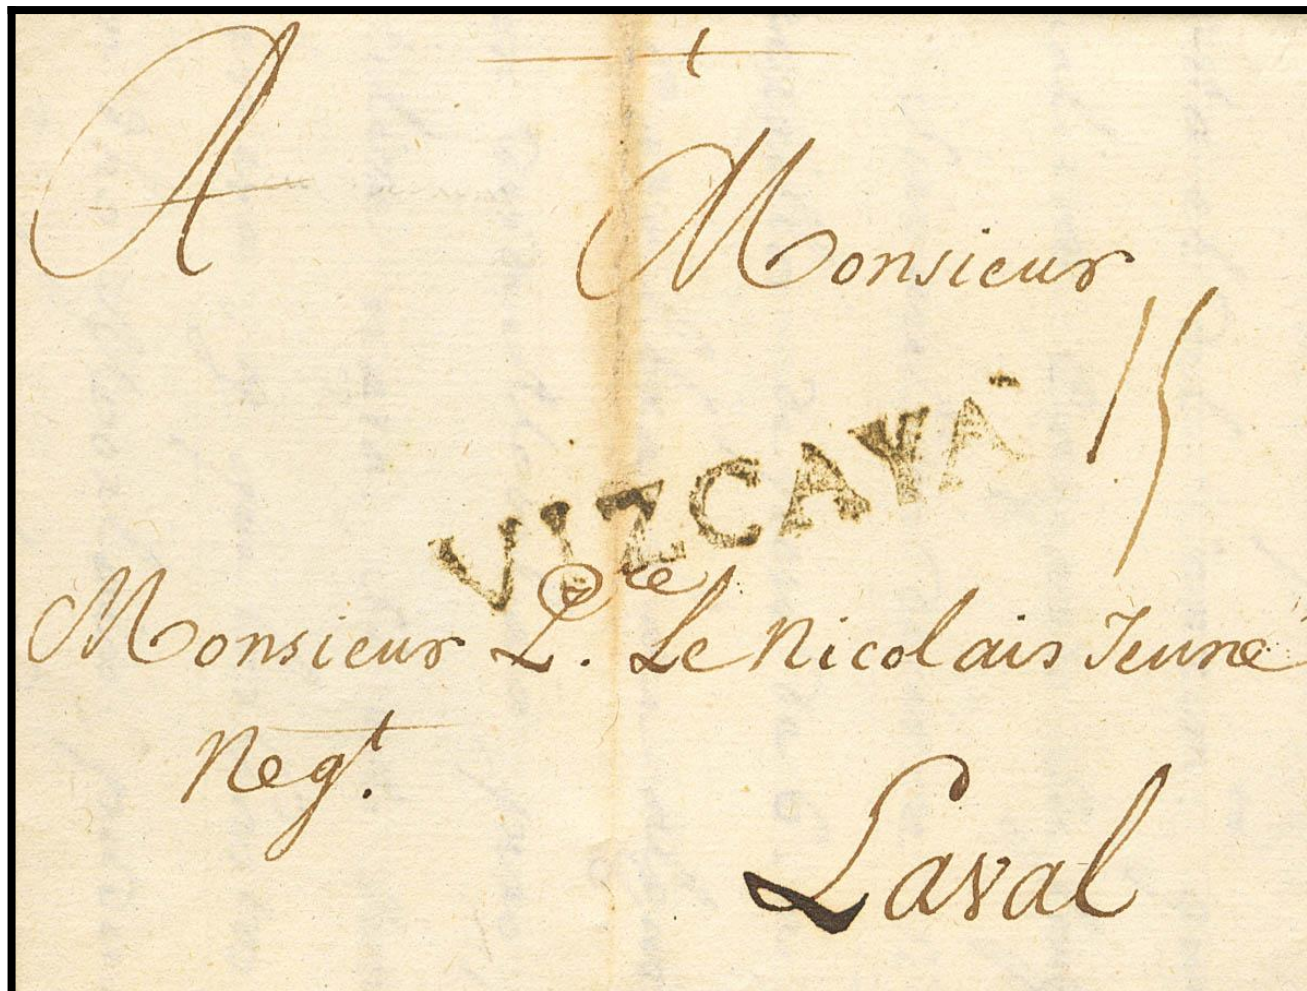 A Monsieur
15
VIZCAYA
Monsieur Le Nicolais Jeune
Negt.
Laval